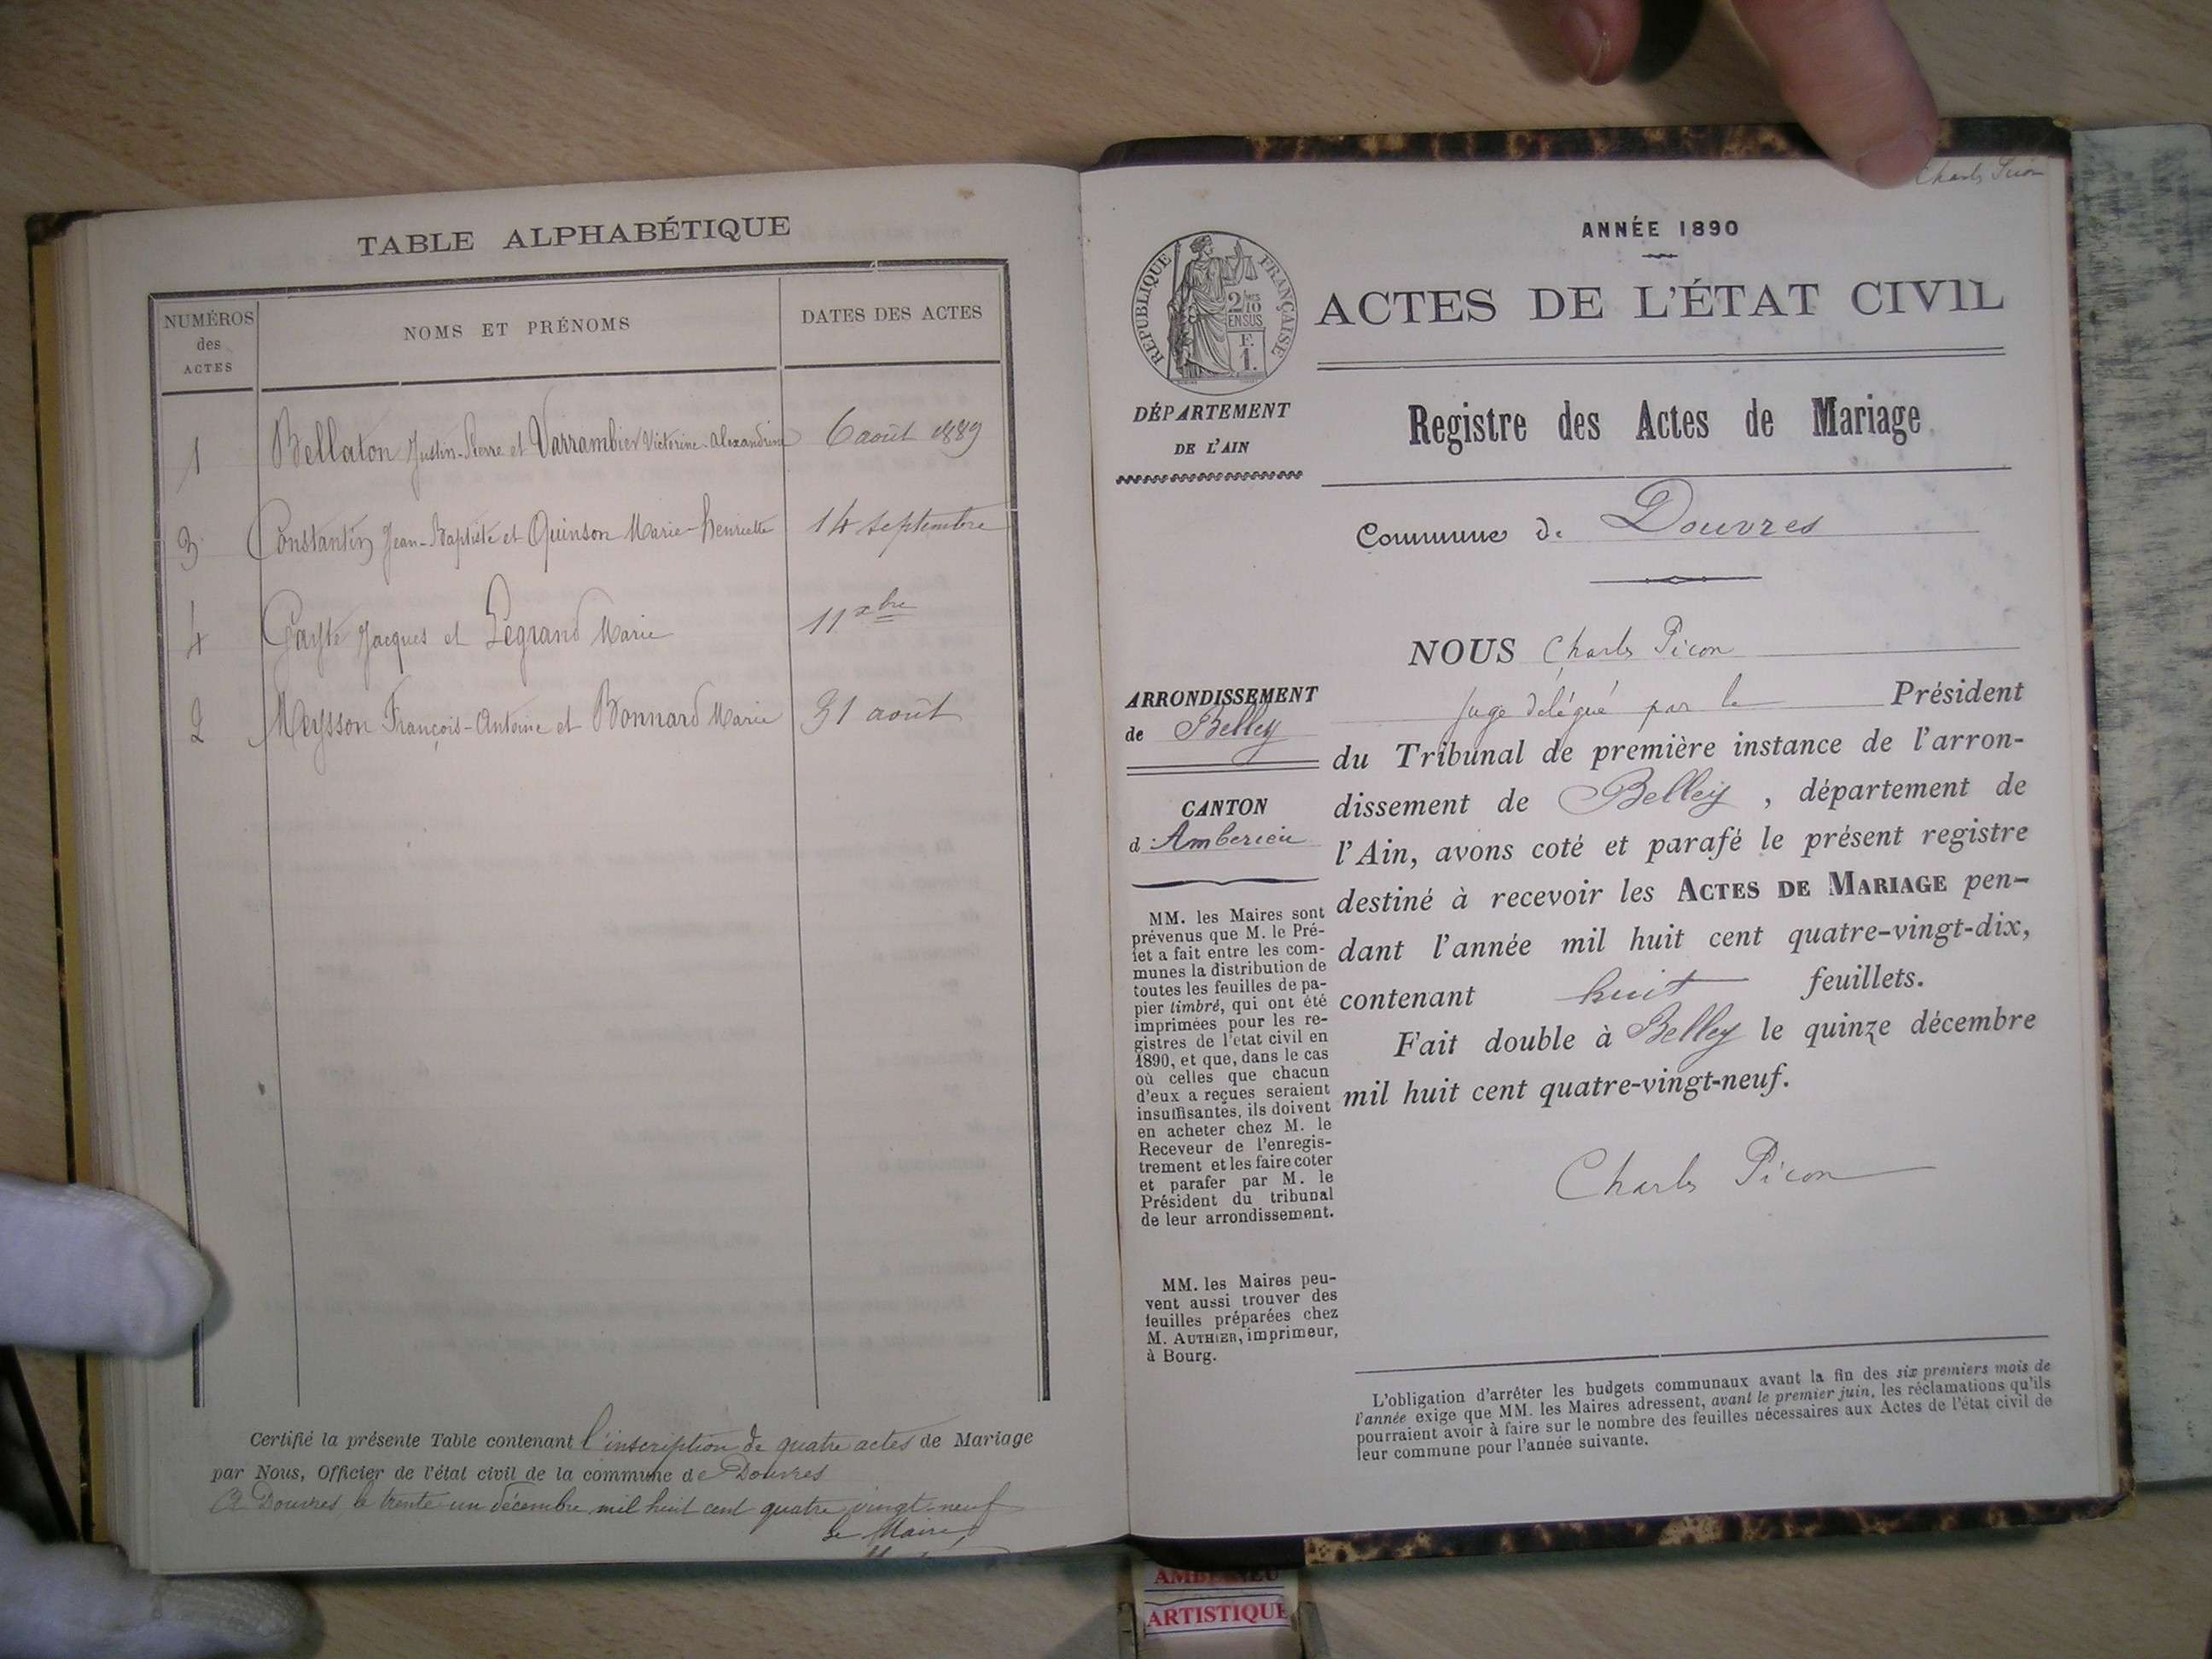 TABLE ALPHABÉTIQUE
NUMÉROS
des
ACTES
NOMS ET PRÉNOMS
DATES DES ACTES
1 Bellaton Justin-Pierre et Varrambier Victorine-Alexandrine 6 août 1889
3 Constantin Jean-Baptiste et Quinson Marie-henriette 14 septembre
4 Jacques et Legrand Marie 11 xbre
2 Meysson François-Antoine et Bonnard Marie 31 août
Certifié la présente Table contenant l'inscription de quatre actes de Mariage
par Nous, Officier de l'état civil de la commune de Douvres
A Douvres, le trente-un décembre mil huit cent quatre vingt-neuf
Le Maire,
Charles Picon
ANNÉE 1890
RÉPUBLIQUE FRANÇAISE
2/10
EN SUS
F.
1.
ACTES DE L'ÉTAT CIVIL
DÉPARTEMENT
DE L'AIN
Registre des Actes de Mariage
Commune de Douvres
ARRONDISSEMENT
de Belley
CANTON
d'Amberieu
MM. les Maires sont
prévenus que M. le Pré-
fet a fait entre les com-
munes la distribution de
toutes les feuilles de pa-
pier timbré, qui ont été
imprimées pour les re-
gistres de l'état civil en
1890, et que, dans le cas
où celles que chacun
d'eux a reçues seraient
insuffisantes, ils doivent
en acheter chez M. le
Receveur de l'enregis-
trement et les faire coter
et parafer par M. le
Président du tribunal
de leur arrondissement.
MM. les Maires peu-
vent aussi trouver des
feuilles préparées chez
M. AUTHIER, imprimeur,
à Bourg.
NOUS Charles Picon
Juge délégué par le Président
du Tribunal de première instance de l'arron-
dissement de Belley, département de
l'Ain, avons coté et parafé le présent registre
destiné à recevoir les ACTES DE MARIAGE pen-
dant l'année mil huit cent quatre-vingt-dix,
contenant huit feuillets.
Fait double à Belley le quinze décembre
mil huit cent quatre-vingt-neuf.
Charles Picon
L'obligation d'arrêter les budgets communaux avant la fin des six premiers mois de
l'année exige que MM. les Maires adressent, avant le premier juin, les réclamations qu'ils
pourraient avoir à faire sur le nombre des feuilles nécessaires aux Actes de l'état civil de
leur commune pour l'année suivante.
ARTISTIQUE